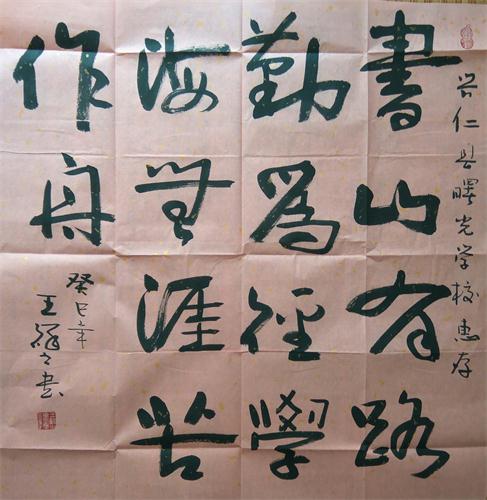 兴仁县曙光学校惠存
書山有路
勤為徑學
海無涯苦
作舟
癸巳年
王祥之书